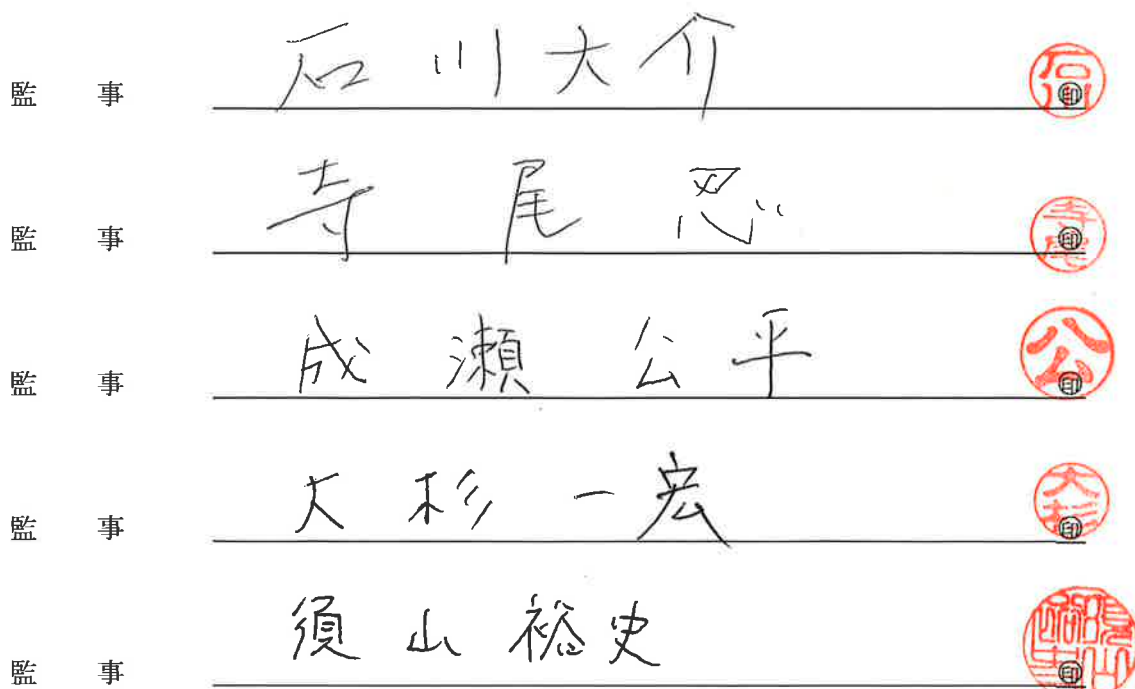 監事 石川大介 印
監事 寺尾忍 印
監事 成瀬公平 印
監事 大杉一宏 印
監事 須山裕史 印